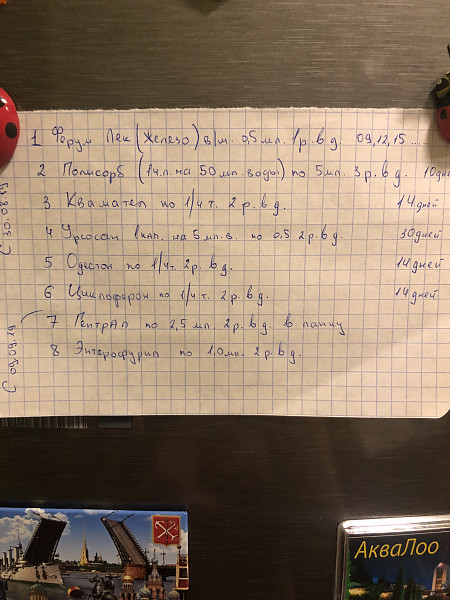 1 Ферум Лек (Железо) в/м. 0,5 мл. 1 р. в д. 09,12,15.....
2 Полисорб (1 ч.л. на 50 мл. воды) по 5 мл. 3 р. в д. 10 дней
3 Квамател по 1/4 т. 2 р. в д. 14 дней
4 Урсосан 1 кап. на 5 мл. в. по 0,5 2 р. в д. 30 дней
5 Одестон по 1/4 т. 2 р. в д. 14 дней
6 Циклоферон по 1/4 т. 2 р. в д. 14 дней
7 ГептрАл по 2,5 мл. 2 р. в д. в лапку
8 Энтерофурил по 1,0 мл. 2 р. в д.
С 30.08.19
С 09.09.19
АкваЛоо